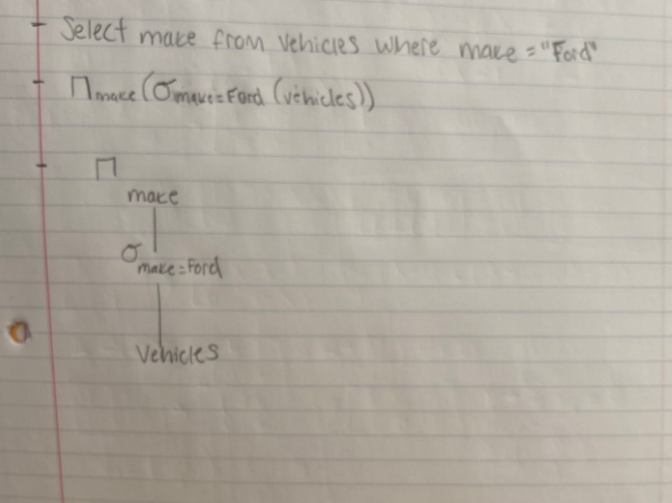 - Select make from vehicles where make = "Ford"
- Π make (σ make=Ford (vehicles))
- Π
make
σ make=Ford
Vehicles